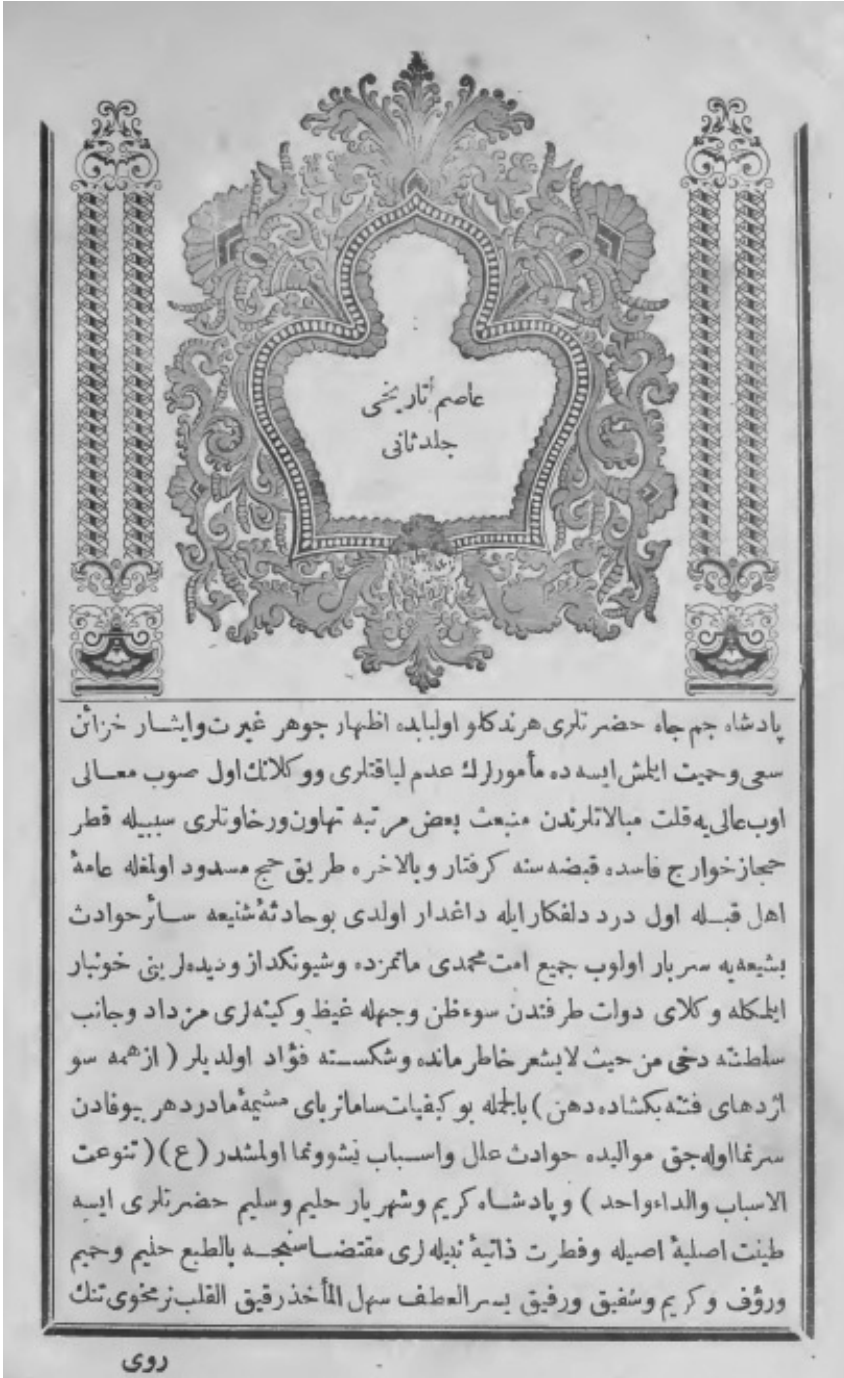 عاصم تاريخى
جلد ثانى
پادشاه جم جاه حضرتلرى هرند كلو اولبابده اظهار جوهر غيرت وايثار خزائن
سعى وحميت ايلمش ايسه ده مأمورلرك عدم لياقتلرى ووكلانك اول صوب معالى
اوب عالى يه قلت مبالاتلرندن منبعث بعض مرتبه تهاون ورخاوتلرى سببيله قطر
حجاز خوارج فاسده قبضه سنه كرفتار وبالاخره طريق حج مسدود اولمغله عامۀ
اهل قبله اول درد دلفكار ايله داغدار اولدى بو حادثۀ شنيعه سائر حوادث
بشيعه يه سربار اولوب جميع امت محمدى ماتمزده وشيونكداز وديده لرينى خونبار
ايلمكله وكلاى دولت طرفندن سوءظن وجهله غيظ وكينه لرى مزداد وجانب
سلطنته دخى من حيث لايشعر خاطر مانده وشكسته فؤاد اولديلر ( از همه سو
اژدهاى فتنه بكشاده دهن ) بالجمله بو كيفيات سامانرباى مشيمۀ مادر دهر بيوفادن
سرنما اوله جق مواليده حوادث علل واسباب نشوونما اولمشدر ( ع ) ( تنوعت
الاسباب والداء واحد ) وپادشاه كريم وشهريار حليم وسليم حضرتلرى ايسه
طينت اصليۀ اصيله وفطرت ذاتيۀ نبيله لرى مقتضاسنجه بالطبع حليم وحميم
ورؤف وكريم وشفيق ورفيق يسر العطف سهل المأخذ رقيق القلب نرمخوى تنك
روى